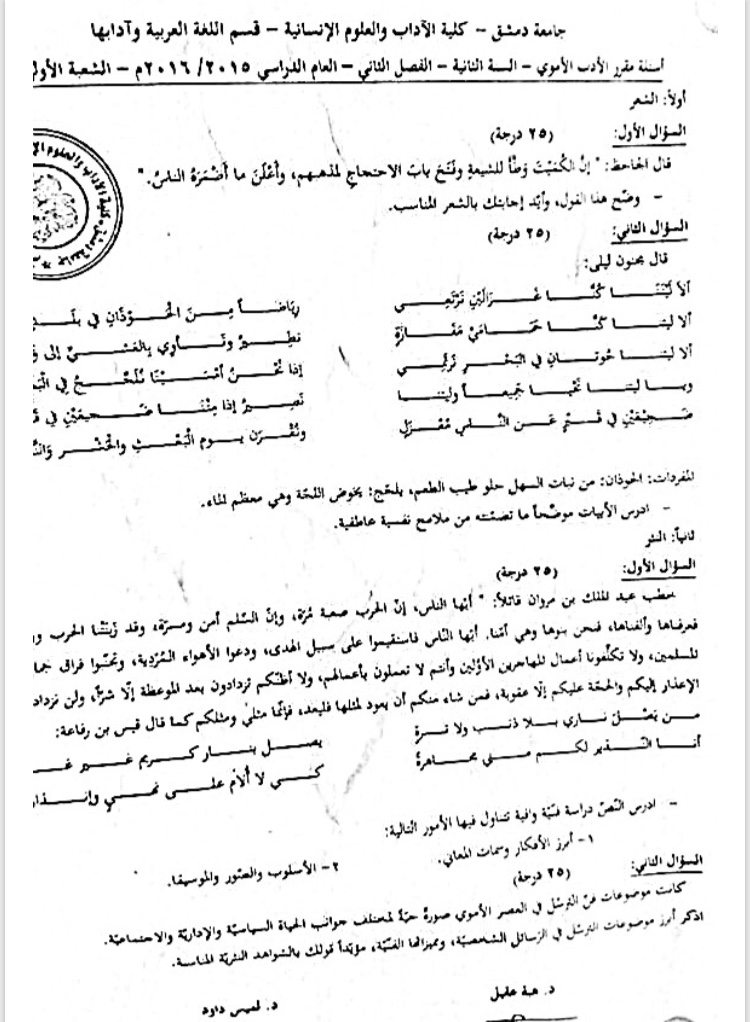 جامعة دمشق - كلية الآداب والعلوم الإنسانية - قسم اللغة العربية وآدابها
أسئلة مقرر الأدب الأموي - السنة الثانية - الفصل الثاني - العام الدراسي ٢٠١٥/ ٢٠١٦م - الشعبة الأولى
أولاً: الشعر
السؤال الأول: (٢٥ درجة)
قال الجاحظ: " إنّ الكُمَيْتَ وَطَّأَ للشيعةِ وفَتَحَ بابَ الاحتجاجِ لمذهبهم، وأَعْلَنَ ما أَضْمَرَهُ الناسُ. "
- وضّح هذا القول، وأيّد إجابتك بالشعر المناسب.
السؤال الثاني: (٢٥ درجة)
قال مجنون ليلى:
ألا لَيْتَنَا كُنَّا غَزَالَيْنِ نَرْتَعِي رِيَاضاً مِنَ الحَوْذَانِ في
ألا ليتنا كُنَّا حَمَامَيْ مَفَازَةٍ نطيرُ ونَأْوِي بالعَشِيِّ إلى
ألا ليتنا حُوتانِ في البَحْرِ نَرْتَمِي إذا نَحْنُ أَمْسَيْنَا نُلَجِّجُ في
ويا ليتنا نَحْيا جَمِيعاً وليتنا نَصِيرُ إذا مِتْنَا ضَجِيعَيْنِ في
ضَجِيعَيْنِ في قَبْرٍ عَنِ النَّاسِ مُعْزَلٍ ونُقْرَن يومَ البَعْثِ والحَشْرِ
المفردات: الحوذان: من نبات السهل حلو طيب الطعم، يلجّج: يخوض اللجّة وهي معظم الماء.
- ادرس الأبيات موضّحاً ما تضمّنته من ملامح نفسية عاطفية.
ثانياً: النثر
السؤال الأول: (٢٥ درجة)
خطب عبد الملك بن مروان قائلاً: " أيّها الناس، إنّ الحرب صعبة مُرّة، وإنّ السّلم أمن ومسرّة، وقد زَبَنَتْنا الحرب
فعرفناها وألفناها، فنحن بنوها وهي أمّنا. أيّها النّاس فاستقيموا على سبيل الهدى، ودعوا الأهواء المُرْدِية، وتجنّبوا فراق
للمسلمين، ولا تكلّفونا أعمال المهاجرين الأوّلين وأنتم لا تعملون بأعمالهم، ولا أظنّكم تزدادون بعد الموعظة إلّا شرّاً، ولن
الإعذار إليكم والحجّة عليكم إلّا عقوبة، فمن شاء منكم أن يعود لمثلها فليعد، فإنّما مثلي ومثلكم كما قال قيس بن رفاعة:
من يَصْلَ ناري بلا ذنب ولا تِرةٍ يصل بنار كريم غير
أنا النّذير لكم مني مجاهرةً كي لا أُلامَ على نهيي
- ادرس النّصّ دراسة فنيّة وافية تتناول فيها الأمور التالية:
١- أبرز الأفكار وسمات المعاني. ٢- الأسلوب والصّور والموسيقا.
السؤال الثاني: (٢٥ درجة)
كانت موضوعات فنّ الترسّل في العصر الأموي صورةً حيّة لمختلف جوانب الحياة السياسيّة والإداريّة والاجتماعيّة.
اذكر أبرز موضوعات الترسّل في الرّسائل الشخصيّة، ومميزاتها الفنّية، مؤيّداً قولك بالشواهد النثريّة المناسبة.
د. هبة عقيل د. لميس داود